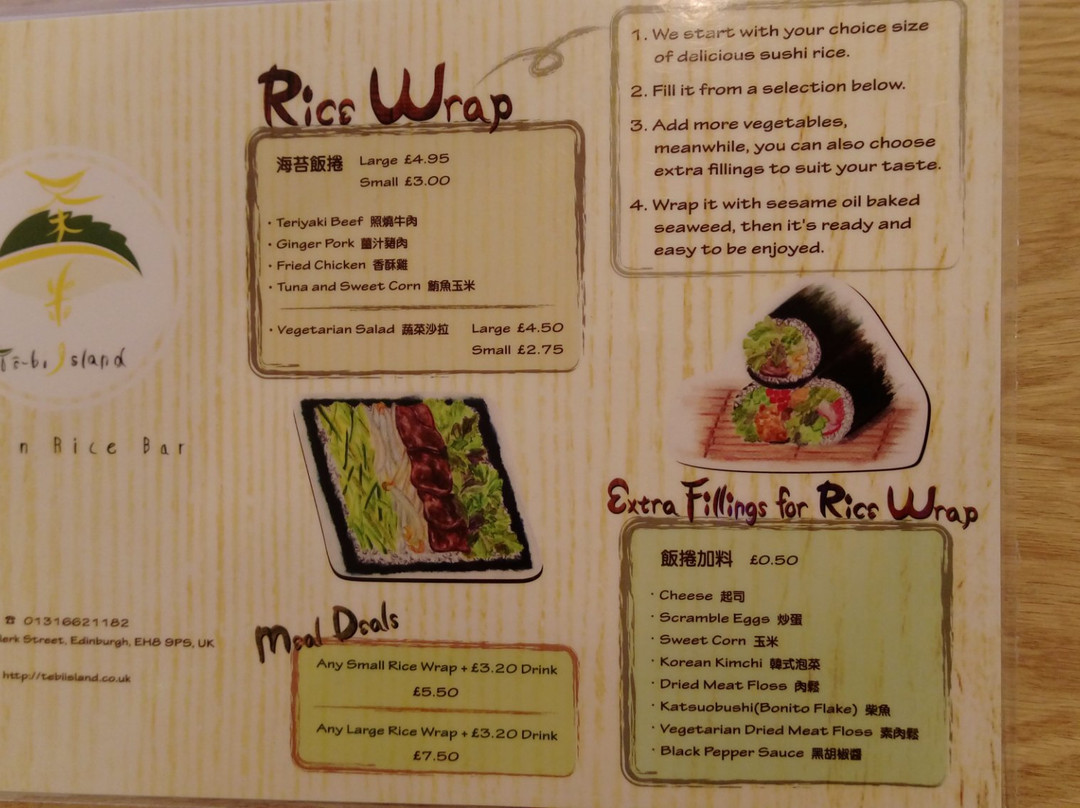 禾
米
Te-bi Island
n Rice Bar
☎ 01316621182
lerk Street, Edinburgh, EH8 9PS, UK
http://tebiisland.co.uk
Rice Wrap
海苔飯捲 Large £4.95
Small £3.00
· Teriyaki Beef 照燒牛肉
· Ginger Pork 薑汁豬肉
· Fried Chicken 香酥雞
· Tuna and Sweet Corn 鮪魚玉米
· Vegetarian Salad 蔬菜沙拉 Large £4.50
Small £2.75
Meal Deals
Any Small Rice Wrap + £3.20 Drink
£5.50
Any Large Rice Wrap + £3.20 Drink
£7.50
1. We start with your choice size
of delicious sushi rice.
2. Fill it from a selection below.
3. Add more vegetables,
meanwhile, you can also choose
extra fillings to suit your taste.
4. Wrap it with sesame oil baked
seaweed, then it's ready and
easy to be enjoyed.
Extra Fillings for Rice Wrap
飯捲加料 £0.50
· Cheese 起司
· Scramble Eggs 炒蛋
· Sweet Corn 玉米
· Korean Kimchi 韓式泡菜
· Dried Meat Floss 肉鬆
· Katsuobushi(Bonito Flake) 柴魚
· Vegetarian Dried Meat Floss 素肉鬆
· Black Pepper Sauce 黑胡椒醬